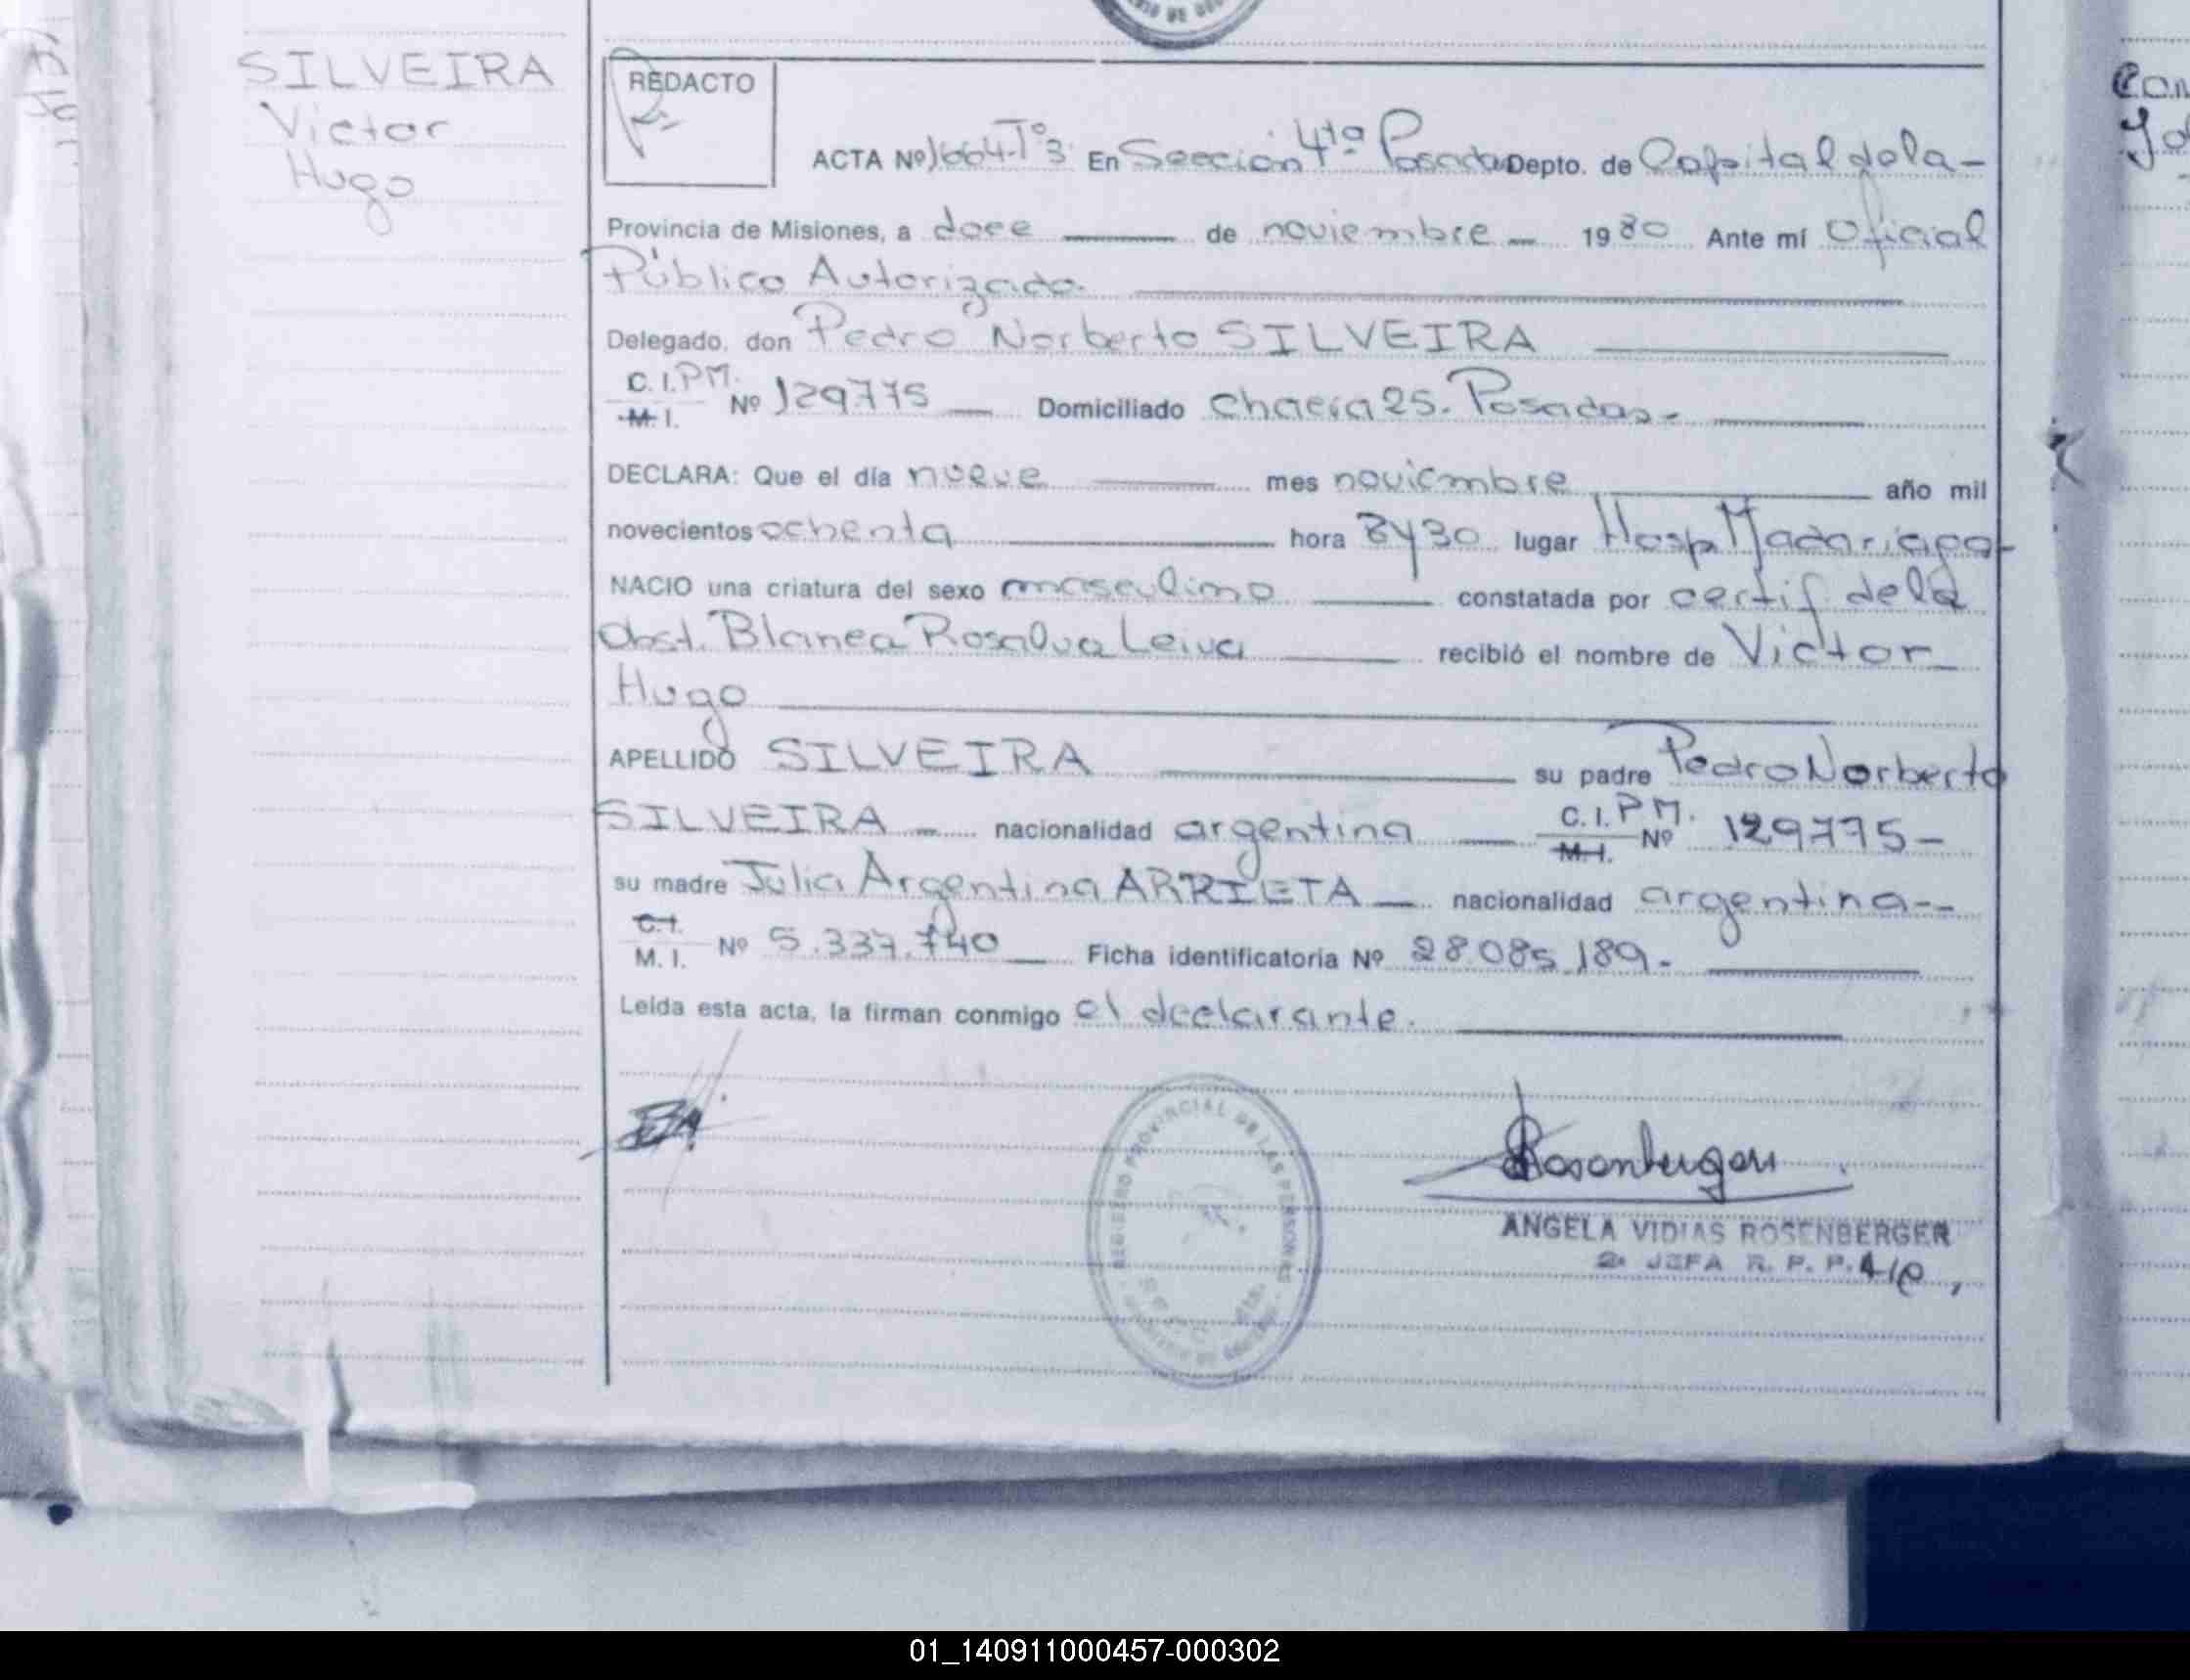 SILVEIRA
Victor
Hugo
REDACTO
ACTA Nº 1664-Tº3 En Sección 4ta Posadas Depto. de Capital de la -
Provincia de Misiones, a doce de noviembre - 1980 Ante mí Oficial
Público Autorizado.
Delegado, don Pedro Norberto SILVEIRA
C. I. PM.
M. I. Nº 129775 Domiciliado Chacra 25. Posadas -
DECLARA: Que el día nueve mes noviembre año mil
novecientos ochenta hora 8y30 lugar Hosp Madariaga -
NACIO una criatura del sexo masculino constatada por certif. de la
Obst. Blanca Rosalva Leiva recibió el nombre de Victor
Hugo
APELLIDO SILVEIRA su padre Pedro Norberto
SILVEIRA nacionalidad argentina C. I. PM. M. I. Nº 129775 -
su madre Julia Argentina ARRIETA nacionalidad argentina --
C. I.
M. I. Nº 5.337.740 Ficha identificatoria Nº 28.085.189 -
Leída esta acta, la firman conmigo el declarante.
REGISTRO PROVINCIAL DE LAS PERSONAS
Rosenberger
ANGELA VIDIAS ROSENBERGER
2ª JEFA R. P. P.
01_140911000457-000302